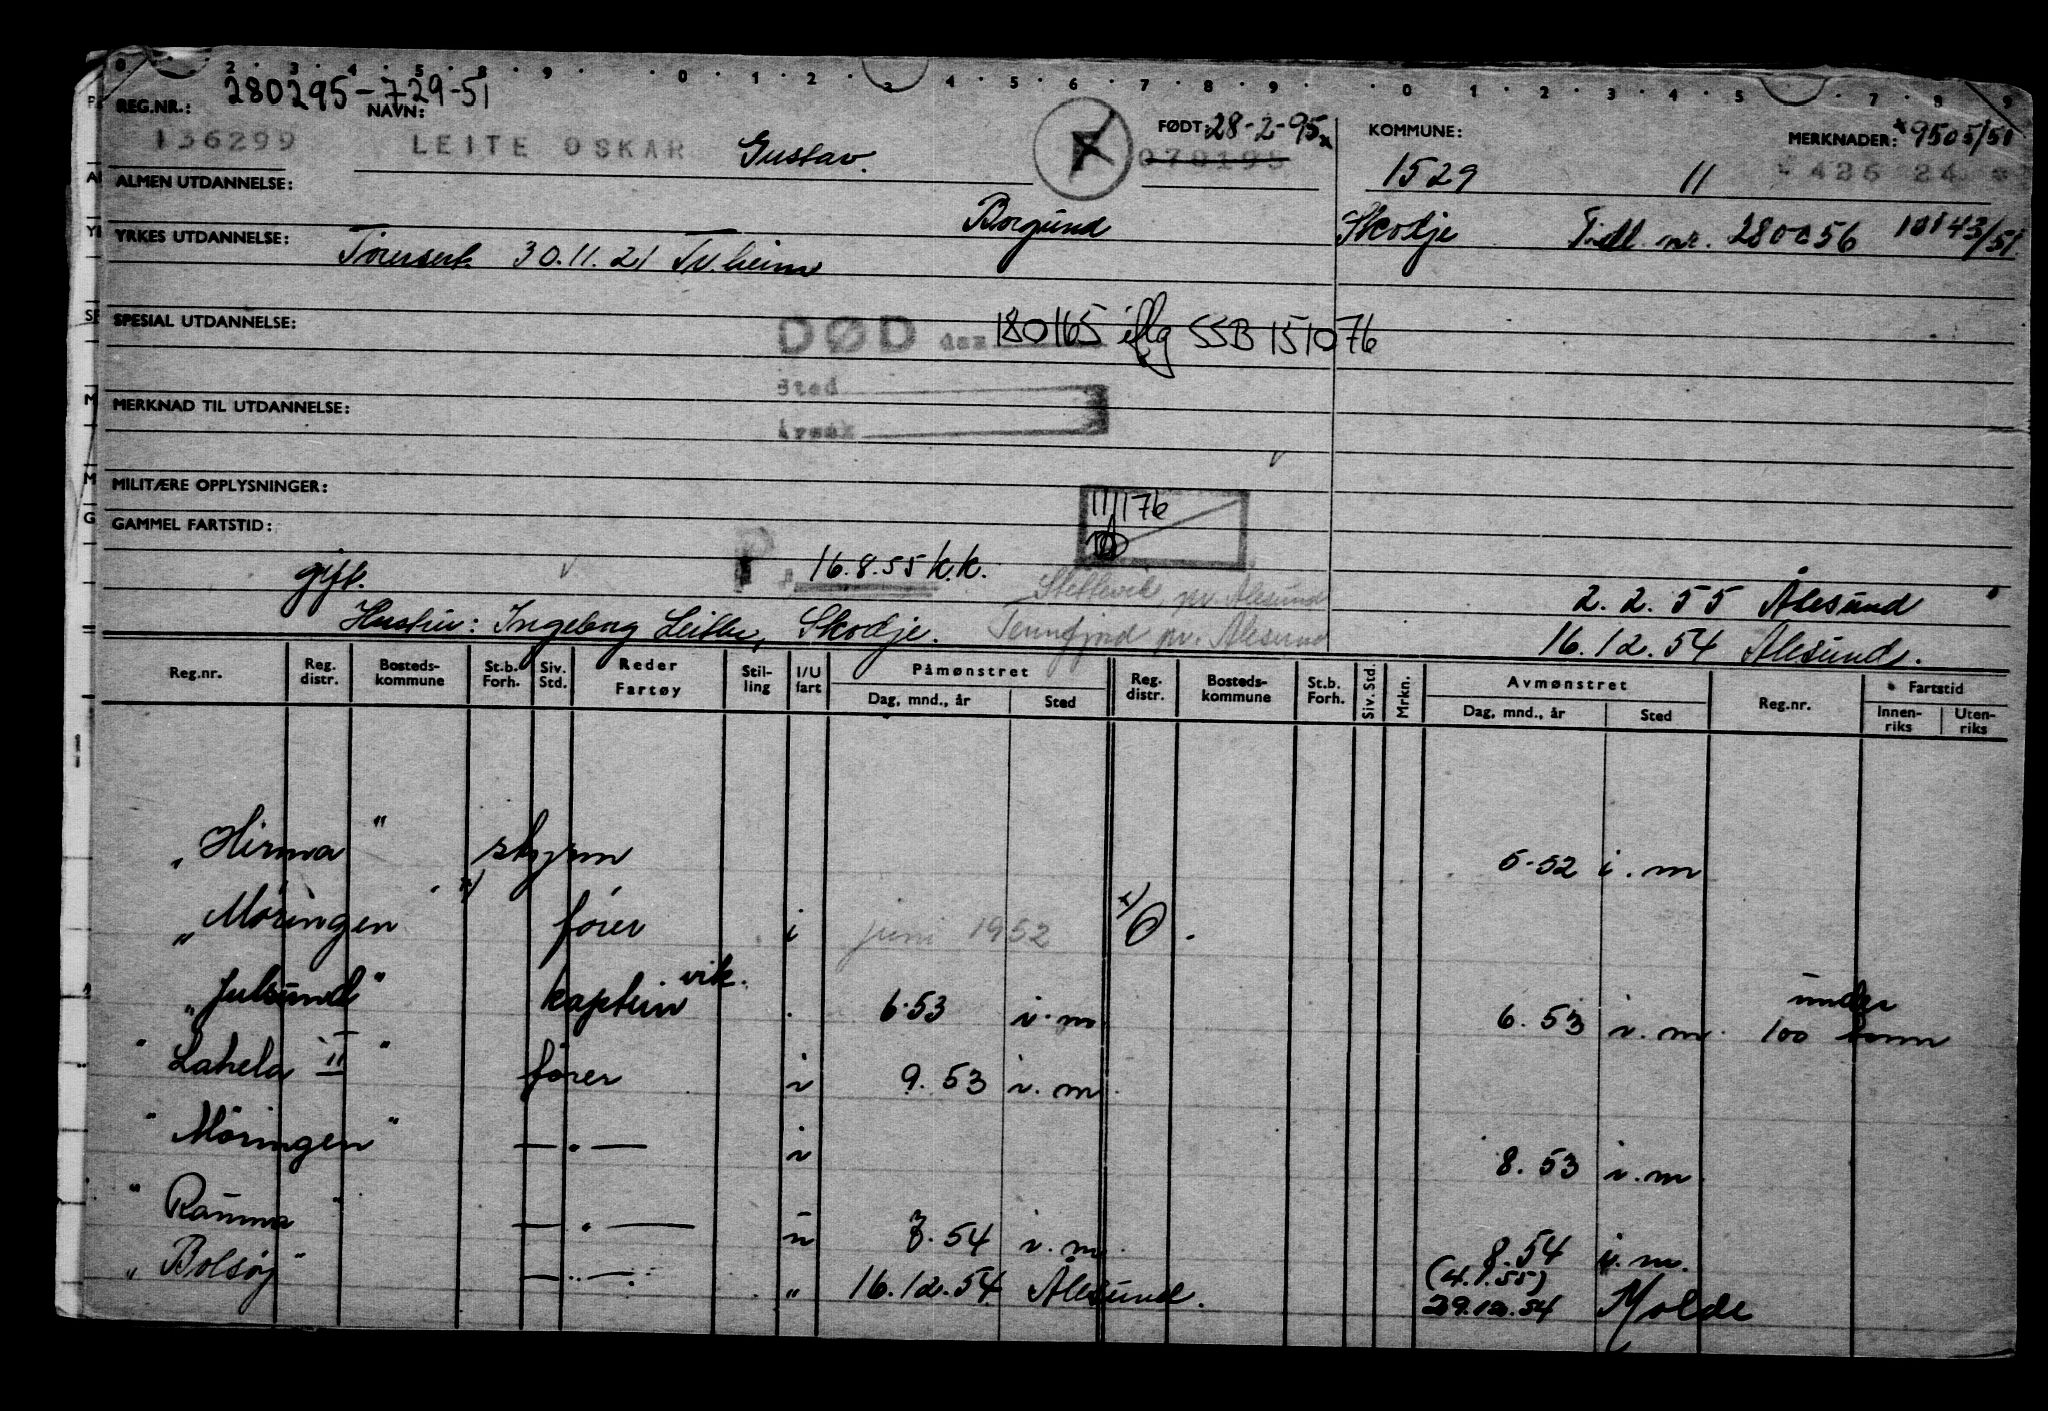 280295-729-51
REG.NR.: NAVN: FØDT: 28-2-95 x KOMMUNE: MERKNADER: x 9505/51
136299 LEITE OSKAR Gustav. 070195 1529 11 42624
ALMEN UTDANNELSE:
Borgund Skodje Tidl. nr. 280056 10143/51
YRKES UTDANNELSE: 30.11.21 Tr.heim
SPESIAL UTDANNELSE: DØD den 180165 iflg SSB 151076
Sted
MERKNAD TIL UTDANNELSE: Årsak
MILITÆRE OPPLYSNINGER:
11/176
GAMMEL FARTSTID:
gift. 16.8.55 k.k. pr. Ålesund 2.2.55 Ålesund
Hustru: Ingeborg Leite, Skodje. Tennfjord pr. Ålesund 16.12.54 Ålesund.
Reg.nr. Reg. distr. Bosteds-kommune St.b. Forh. Siv. Std. Reder Fartøy Stil-ling I/U fart Påmønstret Dag, mnd., år Sted Reg. distr. Bosteds-kommune St.b. Forh. Siv. Std. Mrkn. Avmønstret Dag, mnd., år Sted Reg.nr. Fartstid Innen-riks Uten-riks
"Hirma" styrm 5-52 i.m
"Møringen" x) fører i juni 1952 x)
"Julsund" kaptein vik. 6.53 i.m 6.53 i.m. under 100 tonn
"Lahela II" fører i 9.53 i.m.
"Møringen" —"— i 8.53 i.m
"Rauma" —"— u 7.54 i.m. 8.54 i.m.
"Bolsøy" —"— " 16.12.54 Ålesund. (4.1.55) 29.12.54 Molde